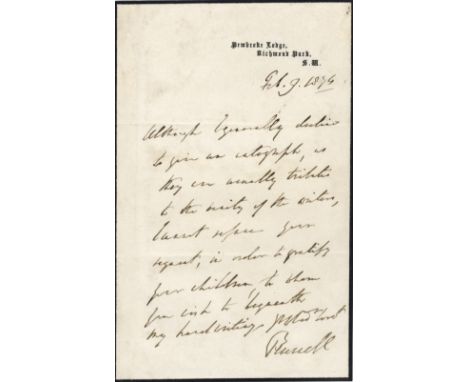 Pembroke Lodge,
Richmond Park,
S.W.
Feb. 9. 1874
Although I generally decline
to give an autograph, as
they are usually tributes
to the vanity of the writers,
I cannot refuse your
request, in order to gratify
your children to whom
you wish to bequeath
my handwriting
Russell